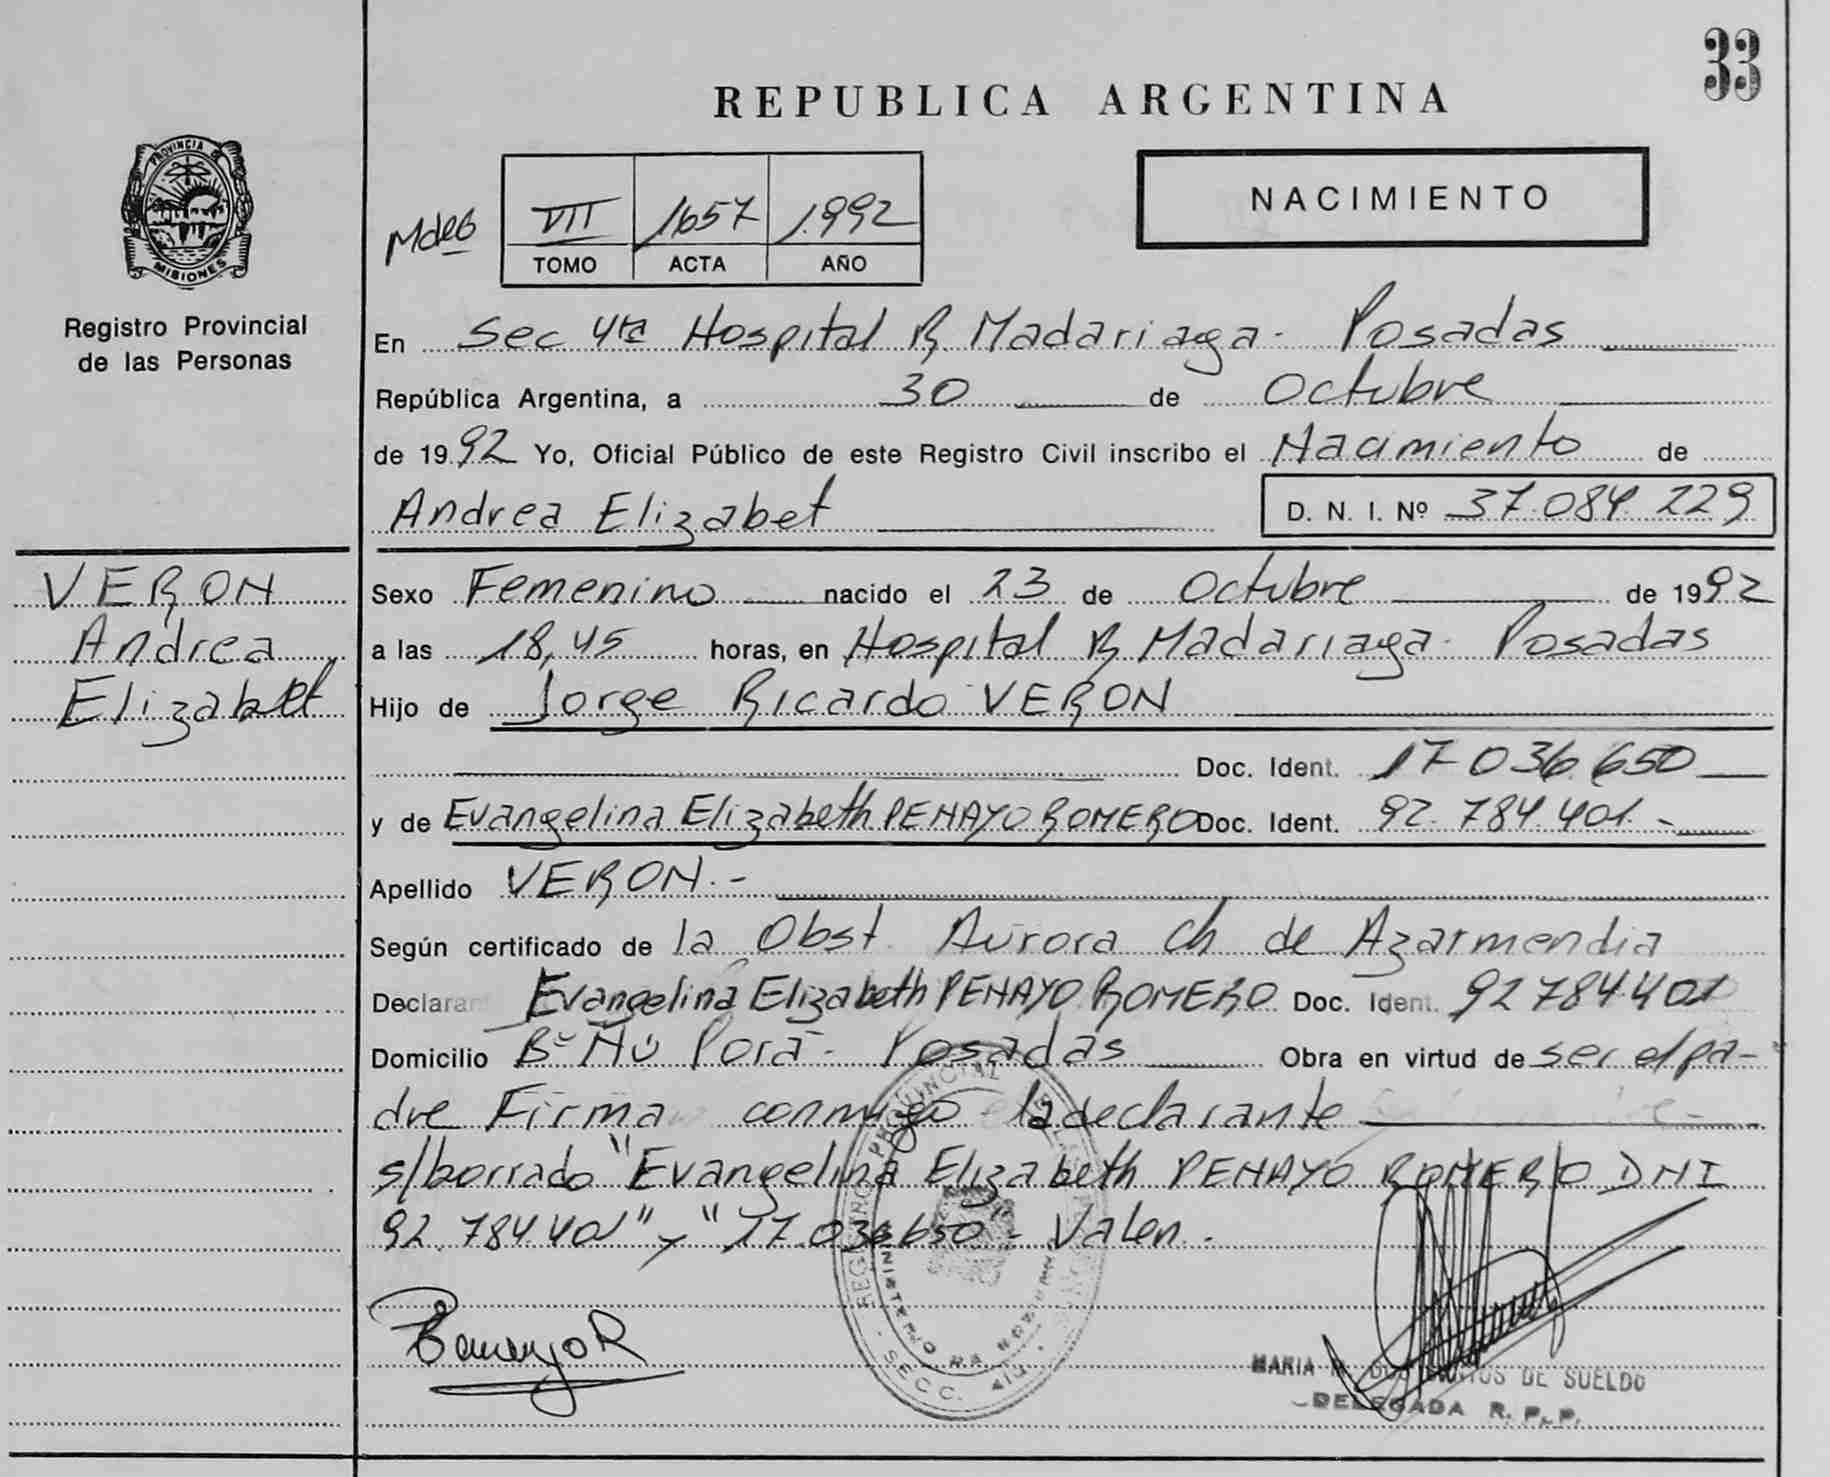 33
REPUBLICA ARGENTINA
PROVINCIA DE
MISIONES
Registro Provincial
de las Personas
NACIMIENTO
Mdes VII 1657 1.992
TOMO ACTA AÑO
En Sec 4ta Hospital R Madariaga - Posadas
República Argentina, a 30 de Octubre
de 1992 Yo, Oficial Público de este Registro Civil inscribo el Nacimiento de
Andrea Elizabet D. N. I. Nº 37.084.229
VERON
Andrea
Elizabet
Sexo Femenino nacido el 23 de Octubre de 1992
a las 18,45 horas, en Hospital R Madariaga - Posadas
Hijo de Jorge Ricardo VERON
Doc. Ident. 17.036.650
y de Evangelina Elizabeth PENAYO ROMERO Doc. Ident. 92.784.401.-
Apellido VERON.-
Según certificado de la Obst. Aurora Ch de Azarmendia
Declaran Evangelina Elizabeth PENAYO ROMERO Doc. Ident. 92784401
Domicilio Bº Ñú Porá - Posadas Obra en virtud de ser el pa-
dre Firma conmigo la declarante
s/borrado "Evangelina Elizabeth PENAYO ROMERO DNI
92.784.401" y "17.036.650" - Valen.-
PenayoR
REGISTRO PROVINCIAL DE LAS PERSONAS
MINISTERIO DE GOBIERNO
SECC. 4ta
MARIA DOS SANTOS DE SUELDO
DELEGADA R. P. P.